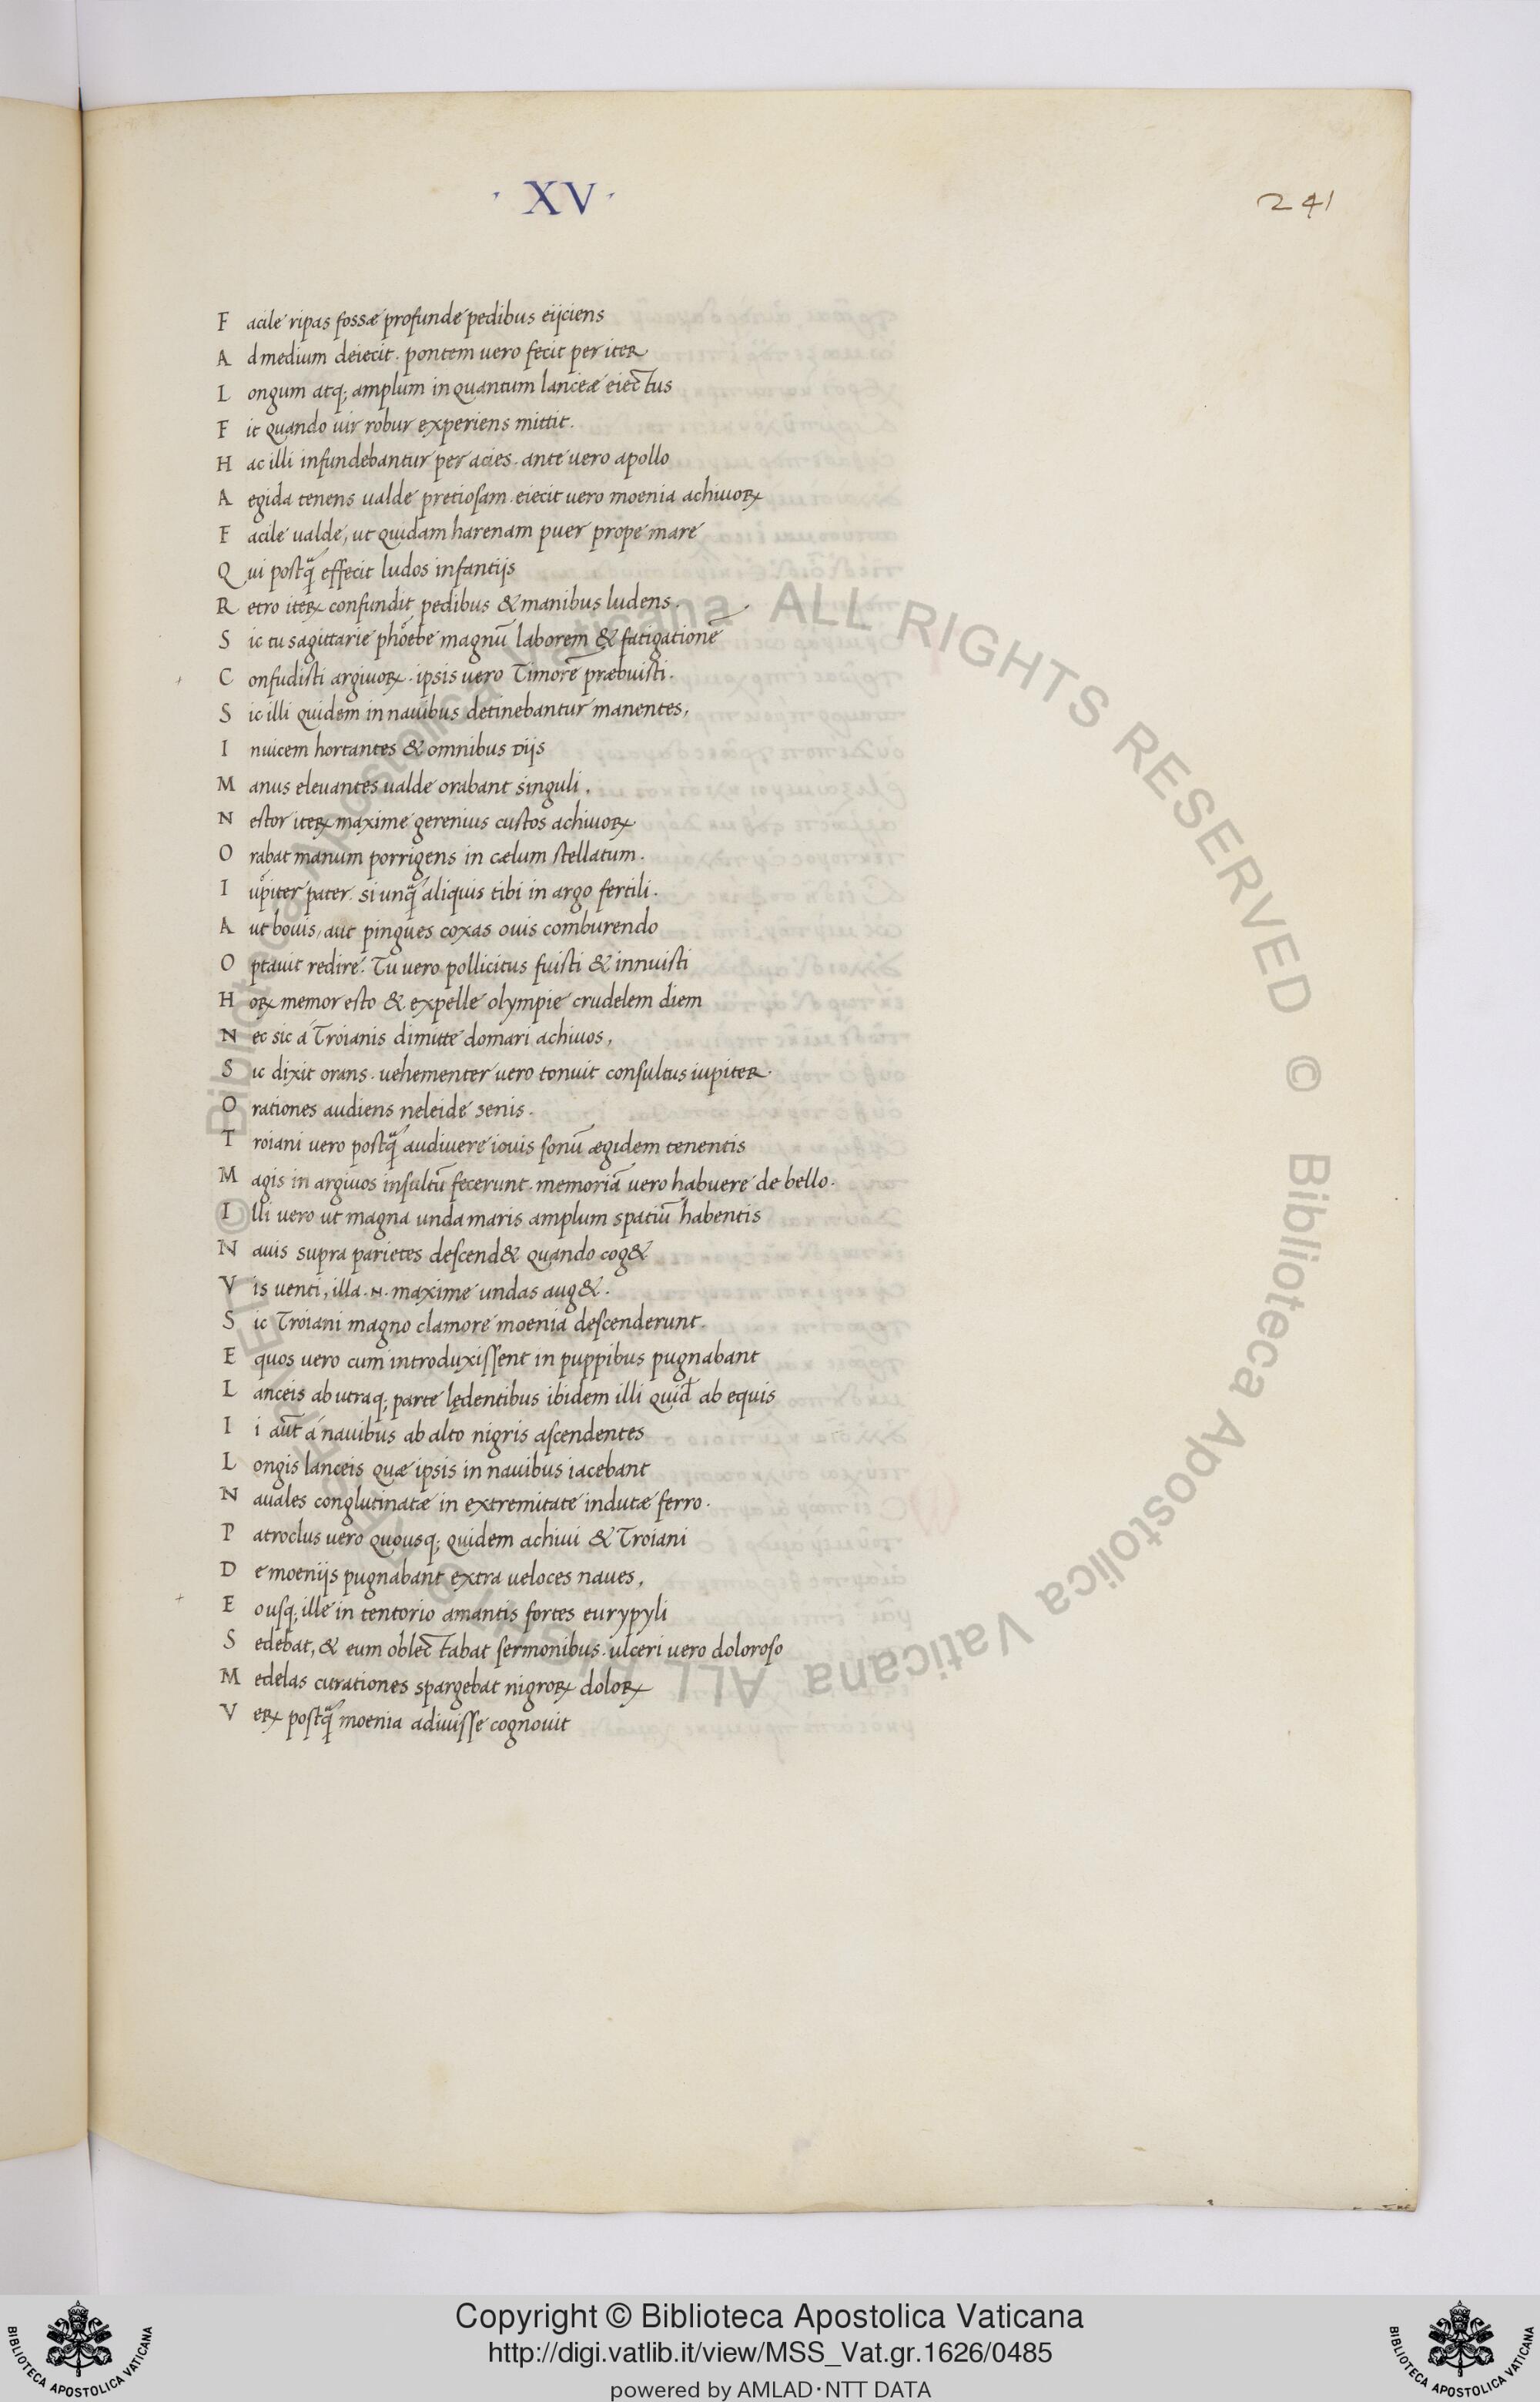 · XV ·
241
F acile ripas fossæ profunde pedibus eijciens
A d medium deiecit. pontem uero fecit per iter
L ongum atq; amplum in quantum lanceæ eiectus
F it quando uir robur experiens mittit.
H ac illi infundebantur per acies. ante uero apollo
A egida tenens ualde pretiosam. eiecit uero moenia achiuoꝝ
F acile ualde, ut quidam harenam puer prope mare
Q ui postq̃ effecit ludos infantijs
R etro iteꝝ confundit pedibus & manibus ludens.
S ic tu sagittarie phoebe magnũ laborem & fatigationẽ
C onfudisti argiuoꝝ. ipsis uero Timorẽ præbuisti.
S ic illi quidem in nauibus detinebantur manentes,
I nuicem hortantes & omnibus Dijs
M anus eleuantes ualde orabant singuli.
N estor iteꝝ maxime gerenius custos achiuoꝝ
O rabat manum porrigens in cælum stellatum.
I upiter pater. si unq̃ aliquis tibi in argo fertili.
A ut bouis, aut pingues coxas ouis comburendo
O ptauit redire. Tu uero pollicitus fuisti & innuisti
H oꝝ memor esto & expelle olympie crudelem diem
N ec sic á Troianis dimitte domari achiuos,
S ic dixit orans. uehementer uero tonuit consultus iupiter.
O rationes audiens neleide senis.
T roiani uero postq̃ audiuere iouis sonũ ægidem tenentis
M agis in argiuos insultũ fecerunt. memoriã uero habuere de bello.
I lli uero ut magna unda maris amplum spatiũ habentis
N auis supra parietes descend& quando cog&
V is uenti, illa .N. maxime undas aug&.
S ic Troiani magno clamore moenia descenderunt.
E quos uero cum introduxissent in puppibus pugnabant
L anceis ab utraq; parte lędentibus ibidem illi quid̃ ab equis
I i aũt á nauibus ab alto nigris ascendentes
L ongis lanceis quæ ipsis in nauibus iacebant
N auales conglutinatæ in extremitate indutæ ferro.
P atroclus uero quousq; quidem achiui & Troiani
D e moenijs pugnabant extra ueloces naues,
E ousq; ille in tentorio amantis fortes eurypyli
S edebat, & eum oblectabat sermonibus. ulceri uero doloroso
M edelas curationes spargebat nigroꝝ doloꝝ
V eꝝ postq̃ moenia adiuisse cognouit
© Biblioteca Apostolica Vaticana ALL RIGHTS RESERVED © Biblioteca Apostolica Vaticana ALL RIGHTS RESERVED
Copyright © Biblioteca Apostolica Vaticana
http://digi.vatlib.it/view/MSS_Vat.gr.1626/0485
powered by AMLAD·NTT DATA
BIBLIOTECA APOSTOLICA VATICANA
BIBLIOTECA APOSTOLICA VATICANA